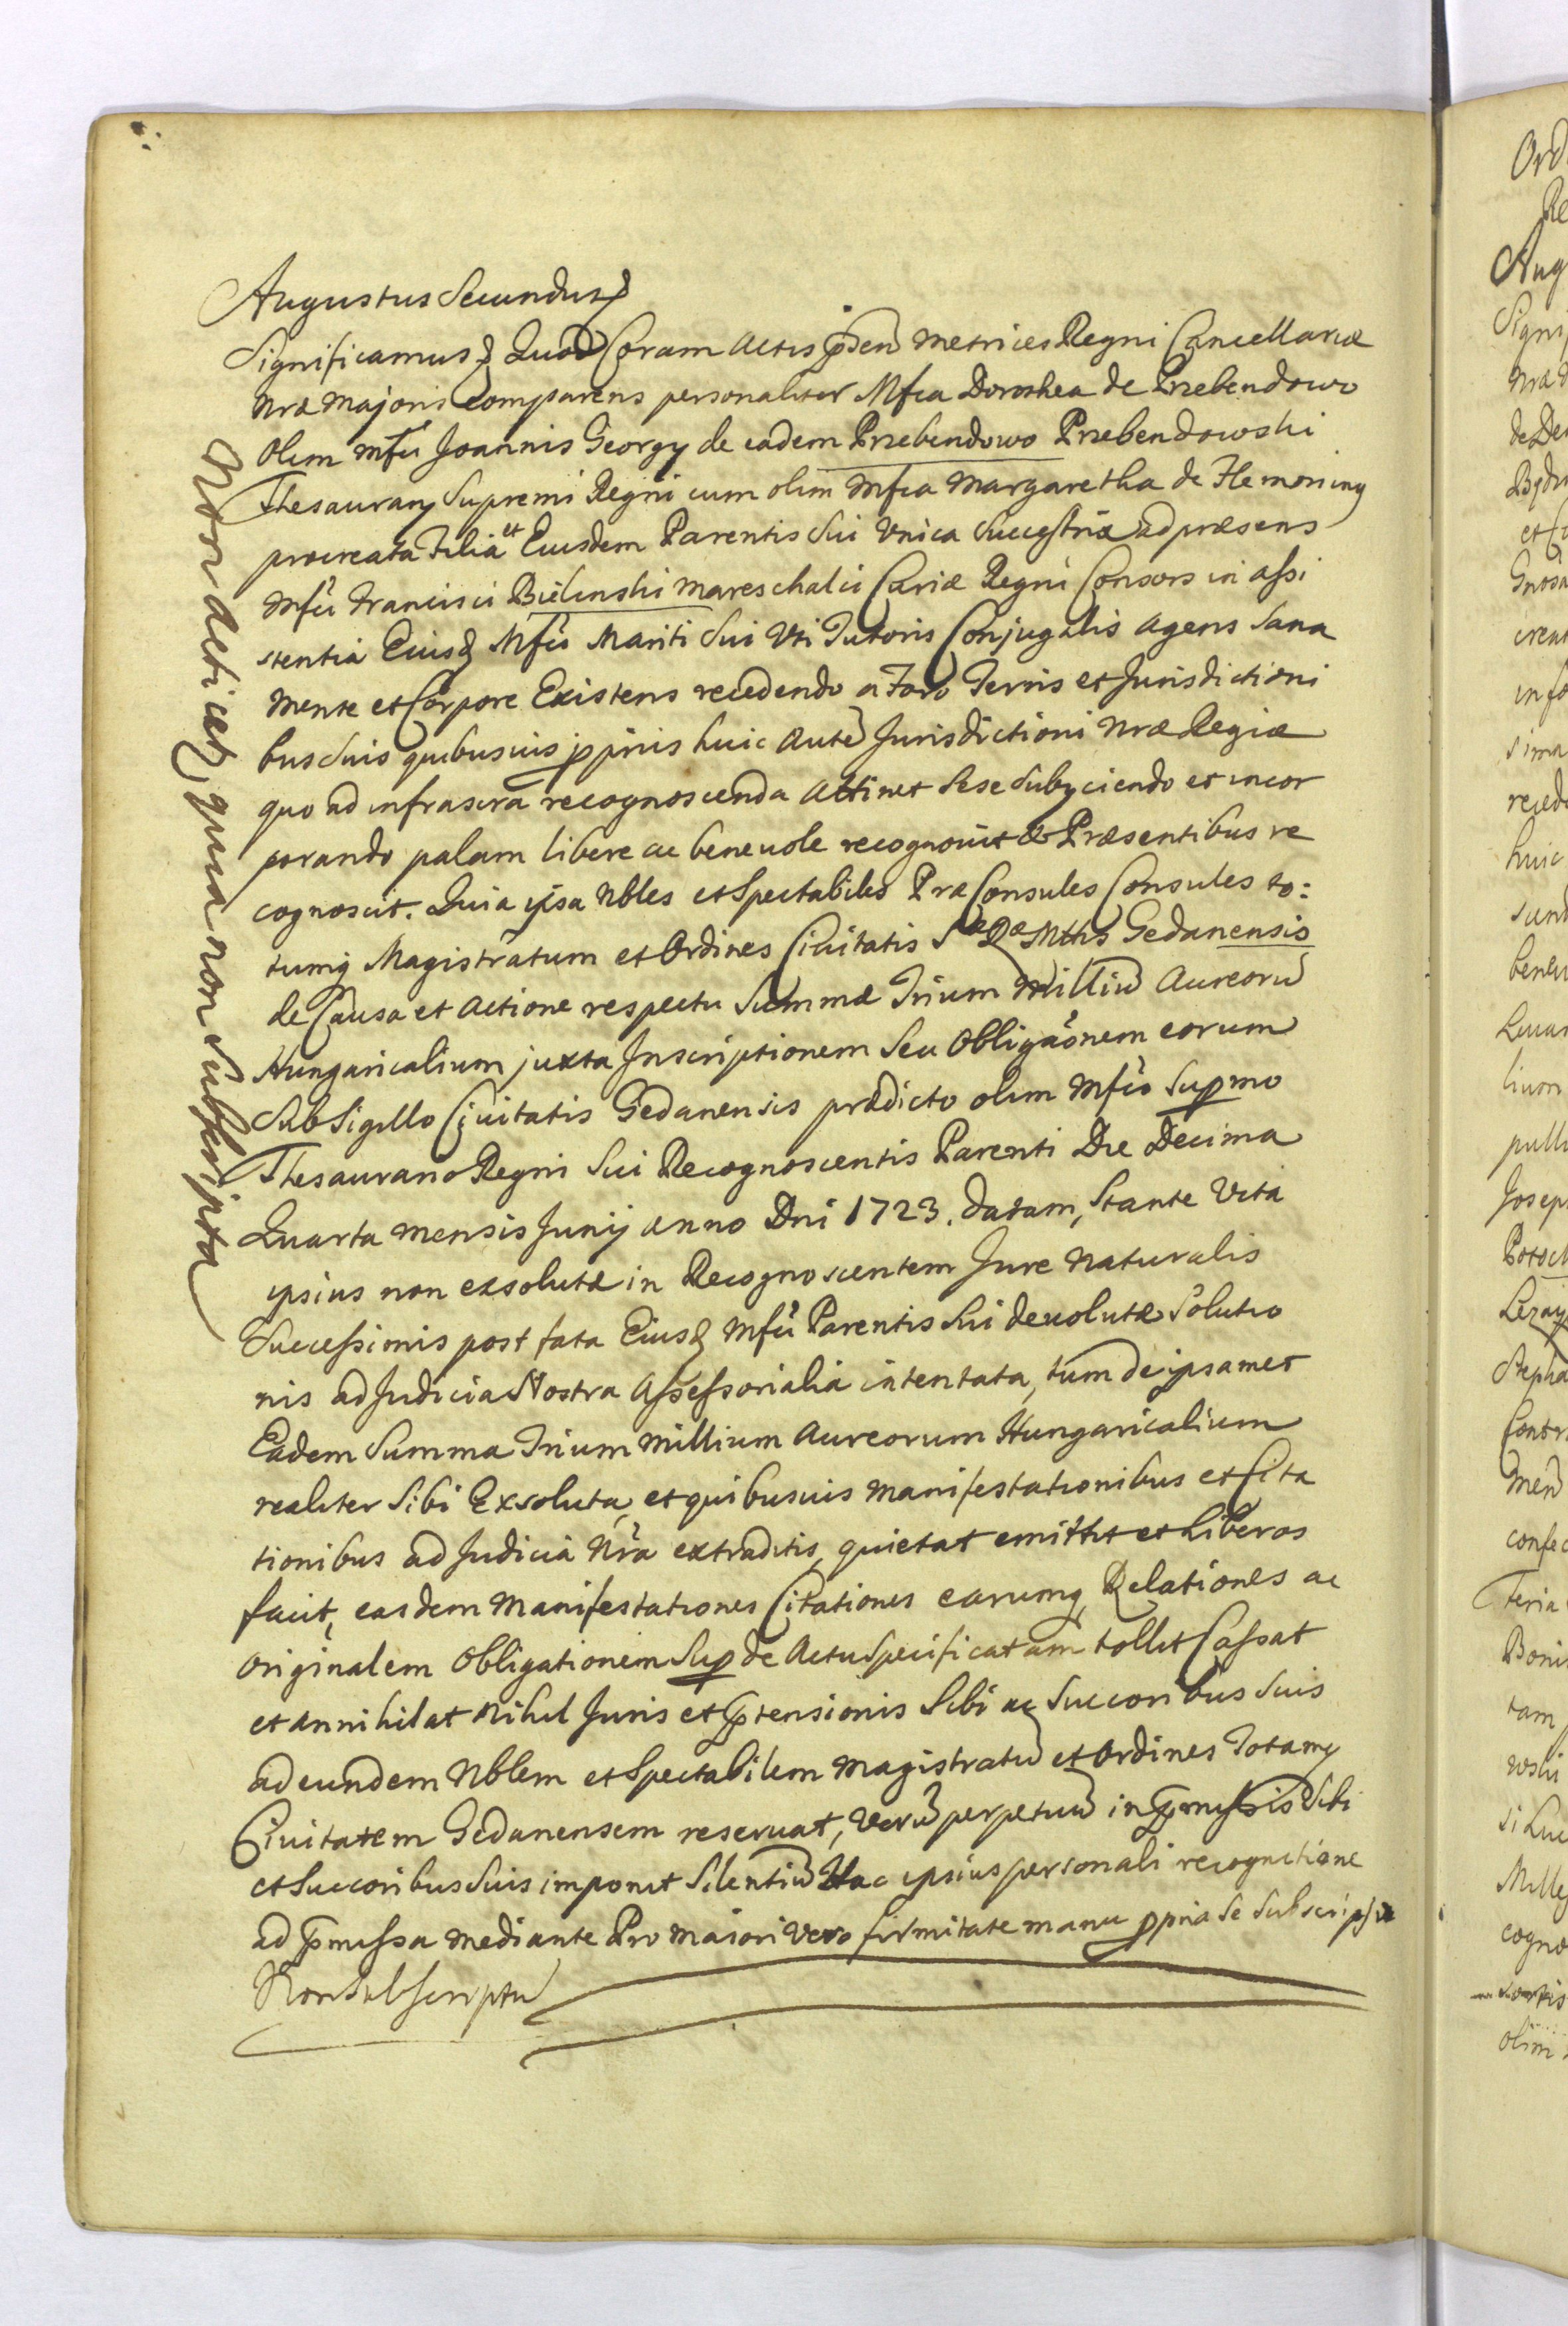 Augustus Secundus
Significamus Quod Coram Actis pñden Metrices Regni Cancellariæ
nræ Majoris comparens personaliter Mfca Dorothea de Przebendowo
olim Mfci Joannis Georgy de eadem Przebendowo Przebendowski
Thesaurary Supremi Regni cum olim Mfca Margaretha de Flemoning
procreata Filia et Eiusdem Parentis sui Unica Successtrix ad præsens
Mfci Francisci Bielinski Mareschalci Curiæ Regni Consors in assi
stentia Eiusd Mfci Mariti Sui Uti Tutoris Conjugalis agens Sana
Mente et Corpore Existens recedendo a Foro Terris et Jurisdictioni
bus suis quibusuis ppriis huic Aute Jurisdictioni nræ Regiæ
quo ad infrascra recognoscenda Attinet Sese subyciendo et incor
porando palam libere ac beneuole recognouit & Præsentibus re
cognoscit. Quia ipsa Nbles et Spectabiles PræConsules Consules to:
tumq Magistratum et Ordines Ciuitatis S Ræ Mttis Gedanensis
de Causa et Actione respectu Summæ Trium Milliu Aureoru
Hungaricalium juxta Inscriptionem Seu Obligaõnem eorum
Sub Sigillo Ciuitatis Gedanensis prædicto olim Mfco Supmo
Thesaurario Regni Sui Recognoscentis Parenti Die Decima
Quarta Mensis Junij anno Dni 1723. datam, Stante Vita
ipsius non exsolutæ in Recognoscentem Jure Naturalis
Successionis post fata Eiusd Mfci Parentis Sui deuolutæ Solutio
nis ad Judicia Nostra Assessorialia intentata, tum de ipsamet
Eadem Summa Trium Millium Aureorum Hungaricalium
realiter Sibi Exsoluta, et quibusuis Manifestationibus et Cita
tionibus ad Judicia Nra extraditis, quietat emittit et Liberos
facit, easdem Manifestationes Citationes earumq, Relationes ac
Originalem Obligationem Sup de Actu Specificatam tollit Cassat
et annihilat Nihil Juris et Ptensionis Sibi ac Succoribus Suis
ad eundem Nblem et Spectabilem Magistratu et Ordines Totamq
Ciuitatem Gedanensem reseruat, Veru perpetuu in Pmissis Sibi
et Succoribus Suis imponit Silentiu Hac ipsius personali recognitione
ad Pmissa mediante Pro maiori Vero firmitate manu ppria Se Subscripsit
Non Subscriptu
Non acticet, quia non Subscripta